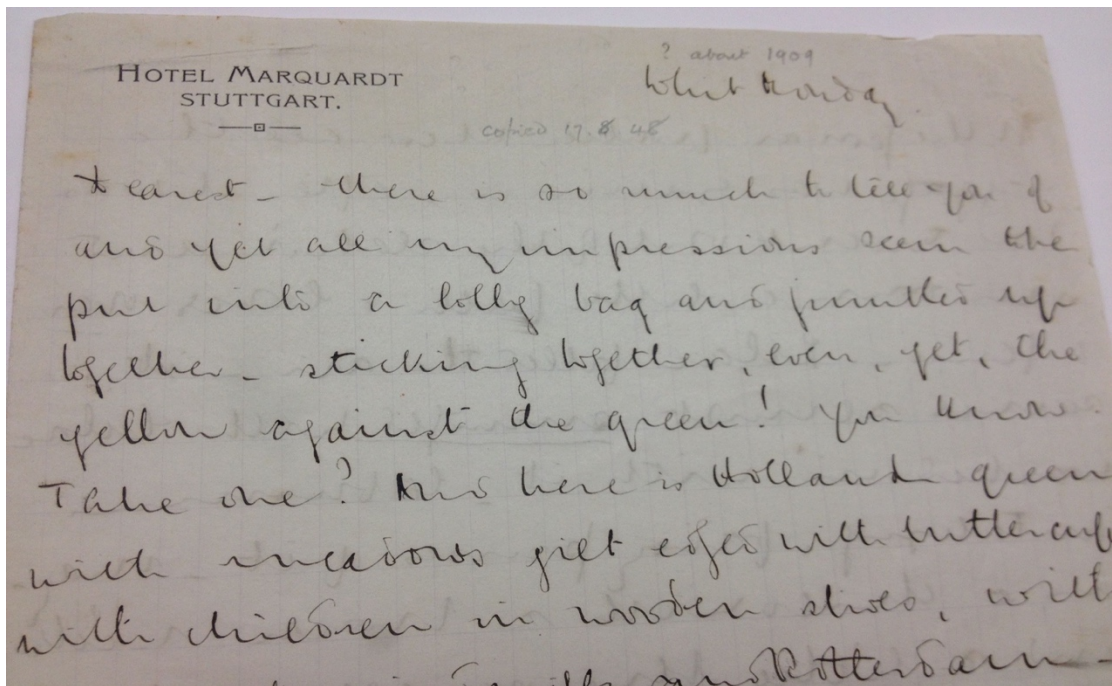 HOTEL MARQUARDT
STUTTGART.
? about 1909
Whit Monday
copied 17.8.48
Dearest – there is so much to tell you of
and yet all my impressions seem the
put into a lolly bag and jumbled up
together – sticking together, even, yet, the
yellow against the green! You know.
Take one? And here is Holland green
with meadows gilt edged with buttercups
with children in wooden shoes, with
and Rotterdam –